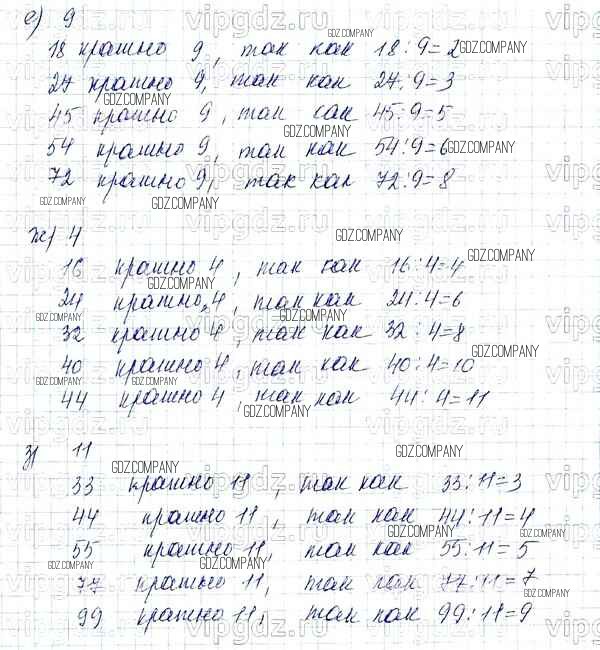 е) 9
18 кратно 9, так как 18:9=2
27 кратно 9, так как 27:9=3
45 кратно 9, так как 45:9=5
54 кратно 9, так как 54:9=6
72 кратно 9, так как 72:9=8
ж) 4
16 кратно 4, так как 16:4=4
24 кратно 4, так как 24:4=6
32 кратно 4, так как 32:4=8
40 кратно 4, так как 40:4=10
44 кратно 4, так как 44:4=11
з) 11
33 кратно 11, так как 33:11=3
44 кратно 11, так как 44:11=4
55 кратно 11, так как 55:11=5
77 кратно 11, так как 77:11=7
99 кратно 11, так как 99:11=9
vipgdz.ru
GDZ.COMPANY